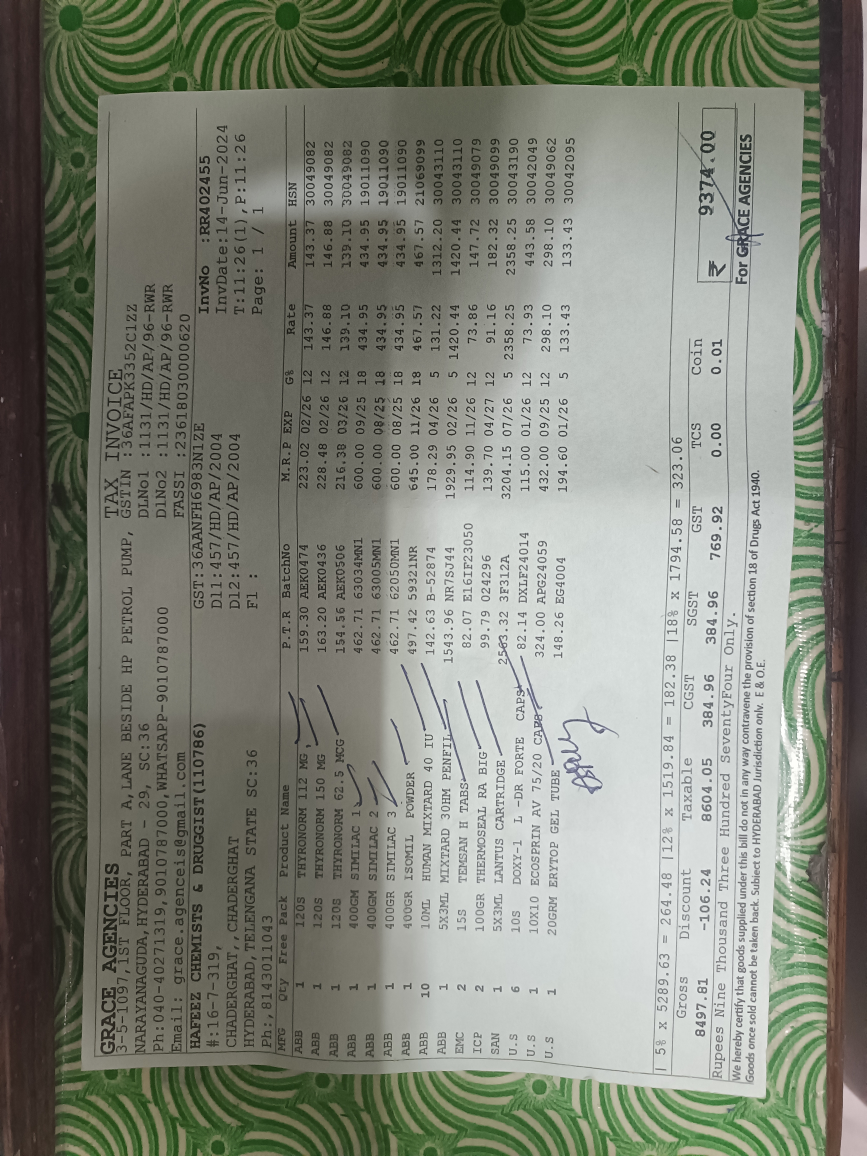 GRACE AGENCIES
3-5-1097,1ST FLOOR, PART A,LANE BESIDE HP PETROL PUMP,
NARAYANAGUDA,HYDERABAD - 29, SC:36
Ph:040-40271319,9010787000,WHATSAPP-9010787000
Email: grace.agenceis@gmail.com
TAX INVOICE
GSTIN :36AFAPK3352C1ZZ
DLNo1 :1131/HD/AP/96-RWR
DlNo2 :1131/HD/AP/96-RWR
FASSI :23618030000620
HAFEEZ CHEMISTS & DRUGGIST(110786)
#:16-7-319,
CHADERGHAT,,CHADERGHAT
HYDERABAD,TELENGANA STATE SC:36
Ph:,8143011043
GST:36AANFH6983N1ZE
D11:457/HD/AP/2004
D12:457/HD/AP/2004
F1 :
InvNo :RR402455
InvDate:14-Jun-2024
T:11:26(1),P:11:26
Page: 1 / 1
MFG Qty Free Pack Product Name P.T.R BatchNo M.R.P EXP G% Rate Amount HSN
ABB 1 120S THYRONORM 112 MG 159.30 AEK0474 223.02 02/26 12 143.37 143.37 30049082
ABB 1 120S THYRONORM 150 MG 163.20 AEK0436 228.48 02/26 12 146.88 146.88 30049082
ABB 1 120S THYRONORM 62.5 MCG 154.56 AEK0506 216.38 03/26 12 139.10 139.10 30049082
ABB 1 400GM SIMILAC 1 462.71 63034MN1 600.00 09/25 18 434.95 434.95 19011090
ABB 1 400GM SIMILAC 2 462.71 63005MN1 600.00 08/25 18 434.95 434.95 19011090
ABB 1 400GR SIMILAC 3 462.71 62050MN1 600.00 08/25 18 434.95 434.95 19011090
ABB 1 400GR ISOMIL POWDER 497.42 59321NR 645.00 11/26 18 467.57 467.57 21069099
ABB 10 10ML HUMAN MIXTARD 40 IU 142.63 B-52874 178.29 04/26 5 131.22 1312.20 30043110
ABB 1 5X3ML MIXTARD 30HM PENFIL 1543.96 NR7SJ44 1929.95 02/26 5 1420.44 1420.44 30043110
EMC 2 15S TEMSAN H TABS 82.07 E16IF23050 114.90 11/26 12 73.86 147.72 30049079
ICP 2 100GR THERMOSEAL RA BIG 99.79 024296 139.70 04/27 12 91.16 182.32 30049099
SAN 1 5X3ML LANTUS CARTRIDGE 2563.32 3F312A 3204.15 07/26 5 2358.25 2358.25 30043190
U.S 6 10S DOXY-1 L -DR FORTE CAPS 82.14 DXLF24014 115.00 01/26 12 73.93 443.58 30042049
U.S 1 10X10 ECOSPRIN AV 75/20 CAPS 324.00 APG24059 432.00 09/25 12 298.10 298.10 30049062
U.S 1 20GRM ERYTOP GEL TUBE 148.26 EG4004 194.60 01/26 5 133.43 133.43 30042095
| 5% x 5289.63 = 264.48 |12% x 1519.84 = 182.38 |18% x 1794.58 = 323.06
Gross Discount Taxable CGST SGST GST TCS Coin
8497.81 -106.24 8604.05 384.96 384.96 769.92 0.00 0.01
₹ 9374.00
Rupees Nine Thousand Three Hundred SeventyFour Only.
For GRACE AGENCIES
We hereby certify that goods supplied under this bill do not in any way contravene the provision of section 18 of Drugs Act 1940.
Goods once sold cannot be taken back. Subject to HYDERABAD Jurisdiction only. E & O.E.